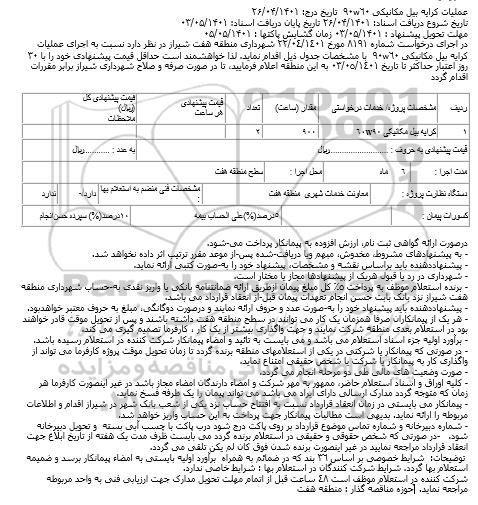 عملیات کرایه بیل مکانیکی ۹۰w۶۰ تاریخ درج: ۲۶/۰۴/۱۴۰۱
تاریخ شروع دریافت اسناد: ۲۶/۰۴/۱۴۰۱ تاریخ پایان دریافت اسناد: ۰۳/۰۵/۱۴۰۱
مهلت تحویل پیشنهاد : ۰۳/۰۵/۱۴۰۱ زمان گشایش پاکتها : ۰۵/۰۵/۱۴۰۱
در اجرای درخواست شماره ۸۱۹۱ مورخ ۲۲/۰۴/۱۴۰۱ شهرداری منطقه هفت شیراز در نظر دارد نسبت به اجرای عملیات
کرایه بیل مکانیکی ۹۰w۶۰ با مشخصات جدول ذیل اقدام نماید، لذا خواهشمند است حداقل قیمت پیشنهادی خود را با ۳۰
روز اعتبار حداکثر تا تاریخ ۰۳/۰۵/۱۴۰۱ به این منطقه اعلام فرمایید، تا در صورت صرفه و صلاح شهرداری شیراز برابر مقررات
اقدام گردد
ردیف مشخصات پروژه/ خدمات درخواستی مقدار (ساعت) تعداد قیمت پیشنهادی هر ساعت قیمت پیشنهادی کل (ریال) ملاحظات
۱ کرایه بیل مکانیکی ۶۰w۹۰ ۹۰۰ ۲
قیمت پیشنهادی به حروف : ............ریال به عدد : ............ریال
مدت اجرا : ۶ ماه محل اجرا : سطح منطقه هفت
دستگاه نظارت پروژه : معاونت خدمات شهری منطقه هفت مشخصات فنی منضم به استعلام بها : دارد- ندارد
کسورات پیمان : ۵درصد(%)علی الحساب بیمه ۱۰درصد(%) سپرده حسن انجام
درصورت ارائه گواهی ثبت نام، ارزش افزوده به پیمانکار پرداخت می-شود.
- به پیشنهادهای مشروط، مخدوش، مبهم ویا دریافت-شده پس-از موعد مقرر ترتیب اثر داده نخواهد شد.
- پیشنهاددهنده باید براساس نقشه و مشخصات، پیشنهاد خود را به-صورت کتبی ارائه نماید.
- شهرداری در رد یا قبول هریک از پیشنهادها مجاز یا مختار است.
- برنده استعلام موظف به پرداخت ۵٪ کل مبلغ پیمان ازطریق ارائه ضمانتنامه بانکی یا واریز نقدی به-حساب شهرداری منطقه
هفت شیراز نزد بانک بابت حسن انجام تعهدات پیمان قبل-از انعقاد قرارداد می باشد.
- پیشنهاددهنده باید پیشنهاد خود را به-صورت عدد و حروف ارائه نمایند و درصورت دوگانگی، مبلغ به حروف معتبر خواهدبود.
- هر یک از پیمانکاران صرفا همزمان یک کار می توانند در سطح منطقه هفت داشته باشند و پس از تحویل موقت قادر خواهند
بود در استعلام بعدی منطقه شرکت نمایند و جهت واگذاری بیشتر از یک کار ، کارفرما تصمیم گیری می کند.
- برآورد اولیه جزء اسناد استعلام می باشد و می بایست به تائید و امضاء پیمانکار شرکت کننده در استعلام رسیده باشد.
- در صورتی که پیمانکار یا شرکتی در یکی از استعلامهای منطقه برنده گردد تا زمان تحویل موقت پروژه کارفرما می تواند از
واگذاری کار به پیمانکار یا شرکت یا شخص حقیقی امتناع نماید.
- صورت وضعیت های مالی طی دو مرحله انجام می گردد.
- کلیه اوراق و اسناد استعلام حاضر، ممهور به مهر شرکت و امضاء دارندگان امضاء مجاز باشد در غیر اینصورت کارفرما هر
زمان که متوجه گردد مدارک ارسالی دارای ایراد می باشد می تواند پیمان را یک طرفه فسخ نماید.
- پیمانکار می بایستی در زمان انعقاد قرارداد نسبت به افتتاح حساب نزد یکی از شعب بانک شهر در شیراز اقدام و اطلاعات
مربوطه را ارائه نماید، بدیهی است مطالبات پیمانکار جهت پرداخت به این حساب واریز خواهد شد.
- شماره دبیرخانه و شماره تماس موضوع قرارداد بر روی پاکت درج شود درب پاکت با چسب آبی بسته و تحویل دبیرخانه
شود. -در صورتی که شخص حقوقی و حقیقی در استعلام برنده گردد می بایست ظرف مدت یک هفته از تاریخ ابلاغ جهت
انعقاد قرارداد مراجعه نمایید در غیر اینصورت برنده شدن فوق کان لم یکن تلقی می گردد.
توضیحات: شرایط خصوصی بر اساس ۳۶ بند که در ضمائم به همراه برآورد اولیه بایستی به امضاء پیمانکار برسد و ضمیمه
استعلام بها گردد. شرایط شرکت کنندگان در استعلام بها : شرایط خاصی ندارد.
شرکت کننده در استعلام موظف است ۴۸ ساعت قبل از اتمام مهلت تحویل مدارک جهت ارزیابی فنی به واحد مربوطه
مراجعه نماید. |حوزه مناقصه گذار : منطقه هفت